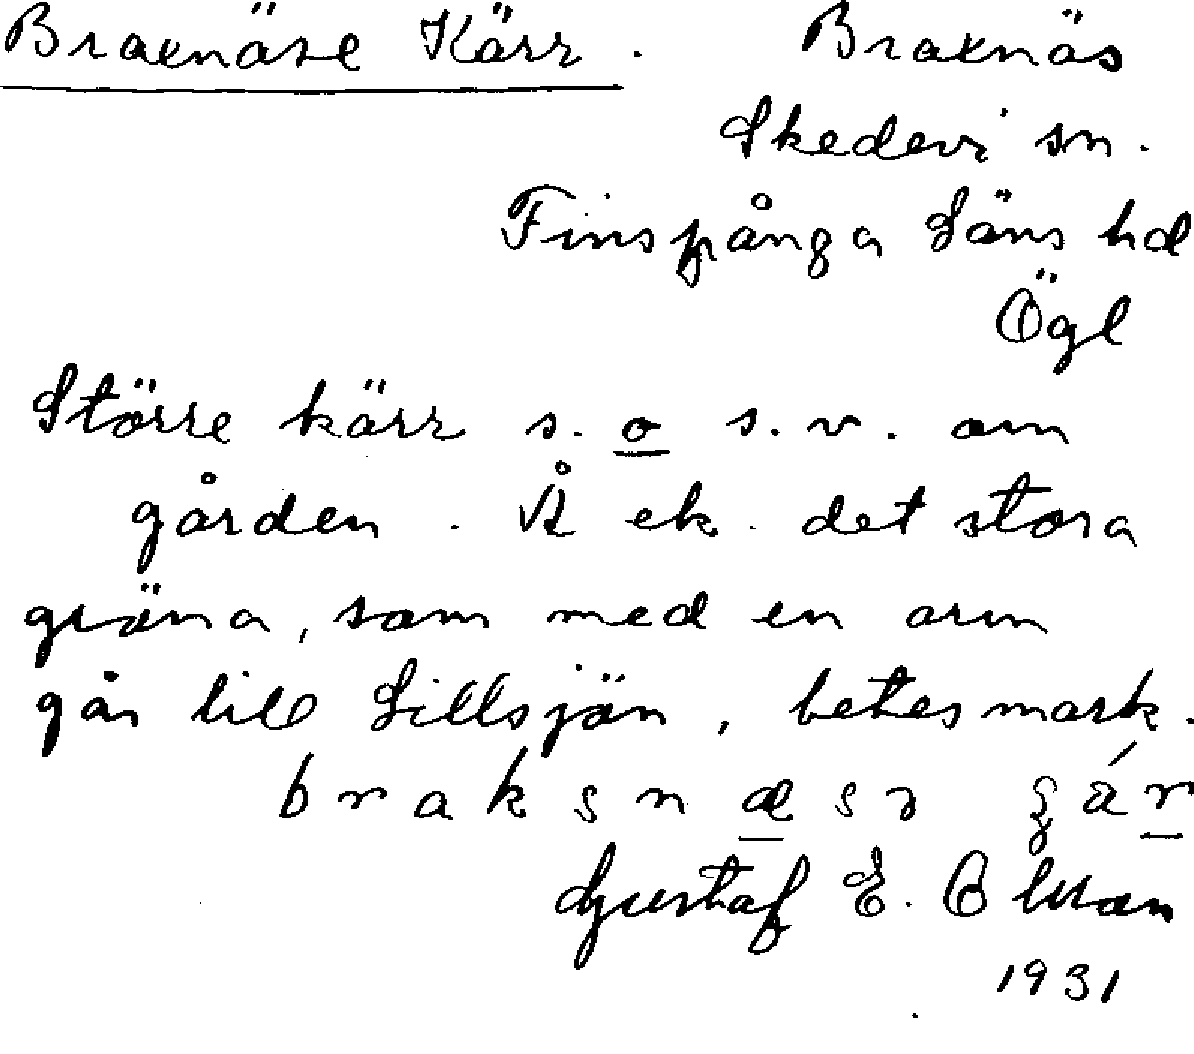 Braxnäse Kärr. Braxnäs
Skedevi sn.
Finspånga Läns hd
Ögl
Större kärr s. o s.v. om
gården. Å ek. det stora
gröna, som med en arm
går till Lillsjön, betesmark.
Gustaf E. Olsson
1931